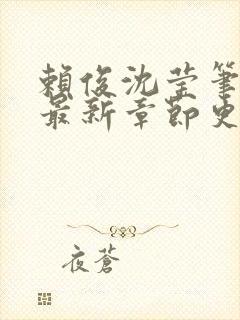 賴俊沈莹筆
最新章節史
夜蒼